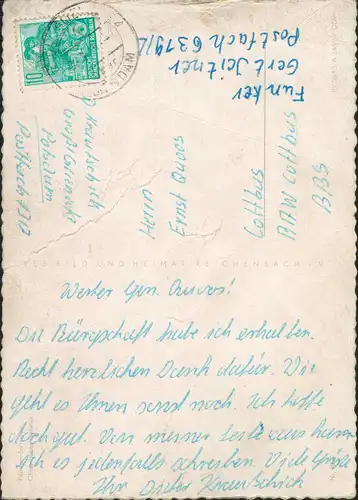 Funker
Gert Jeitner
Postfach 6319/2
10
D. Krautschich
Potsdam
Postfach 1310
Herrn
Ernst Quoos
Cottbus
RAW Cottbus
BBS
VEB BILD UND HEIMAT REICHENBACH I. V.
Werter Gen. Quoos!
Die Bürgschaft habe ich erhalten.
Recht herzlichen Dank dafür. Wie
geht es Ihnen sonst noch. Ich hoffe
doch gut. Von meiner Seite aus kann
ich es jedenfalls schreiben. Viele Grüße
Ihr Dieter Krautschich